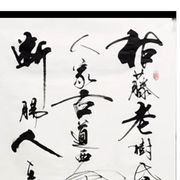 枯藤老樹
人家古道西
断腸人